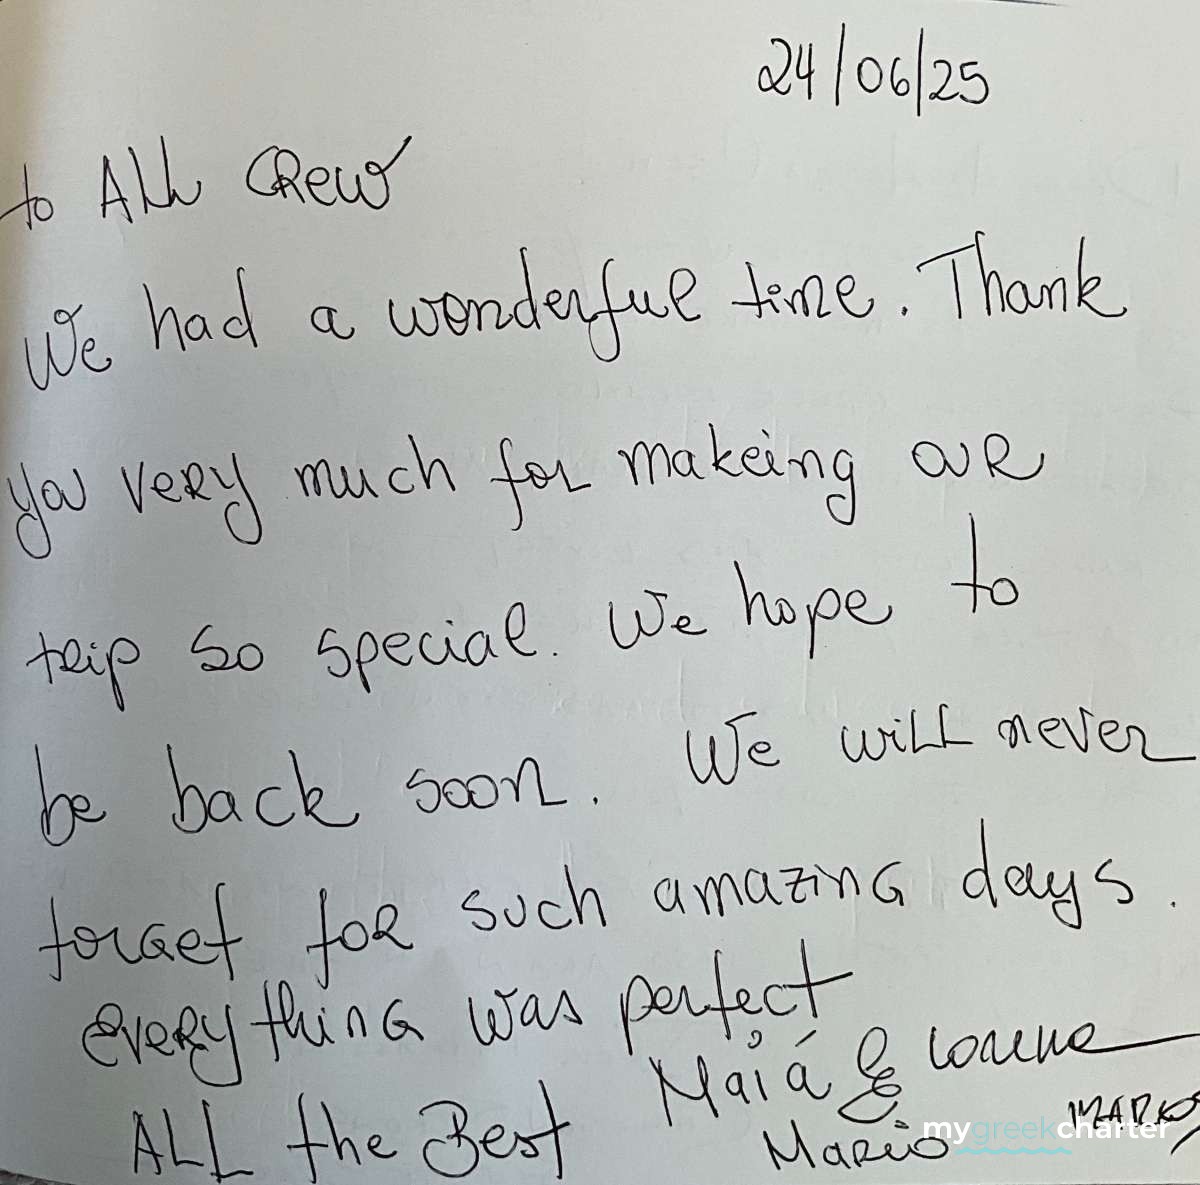 24/06/25
to ALL CREW
We had a wonderful time. Thank
you very much for makeing our
trip so special. We hope to
be back soon. We will never
forget for such amazing days.
everything was perfect
Maiá &
ALL the Best
Mario
MARKOS
mygreekcharter